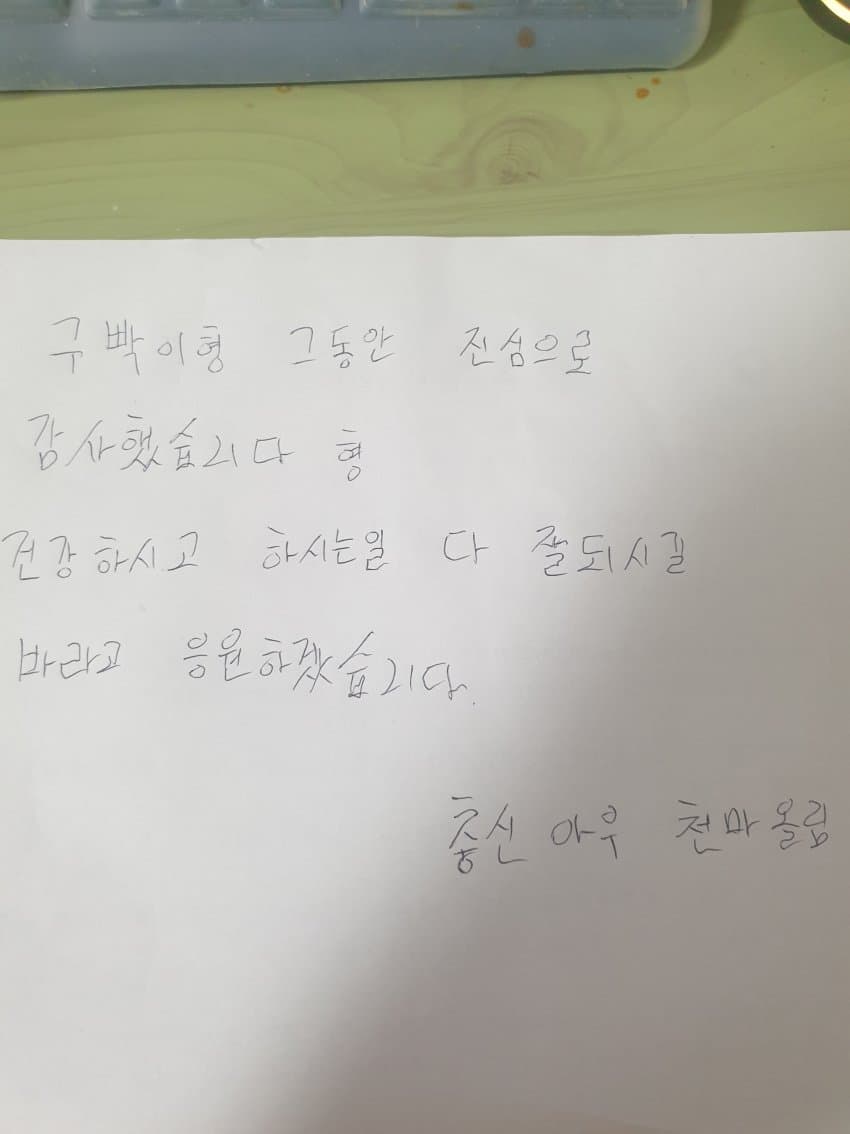 구빡이형 그동안 진심으로
감사했습니다 형
건강하시고 하시는일 다 잘되시길
바라고 응원하겠습니다.
충신 아우 천마올림